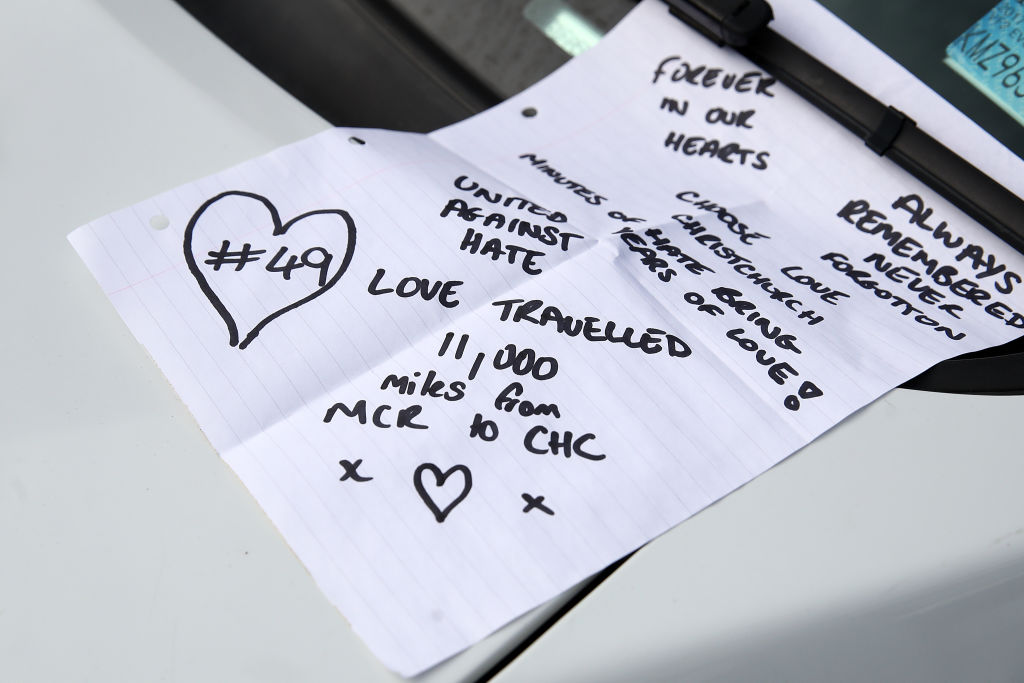 FOREVER
IN OUR
HEARTS
#49
UNITED
AGAINST
HATE
MINUTES of HATE BRING
YEARS OF LOVE!
CHOOSE LOVE
CHRISTCHXCH
ALWAYS
REMEMBERED
NEVER
FORGOTTON
LOVE TRAVELLED
11,000
miles from
MCR to CHC
x x